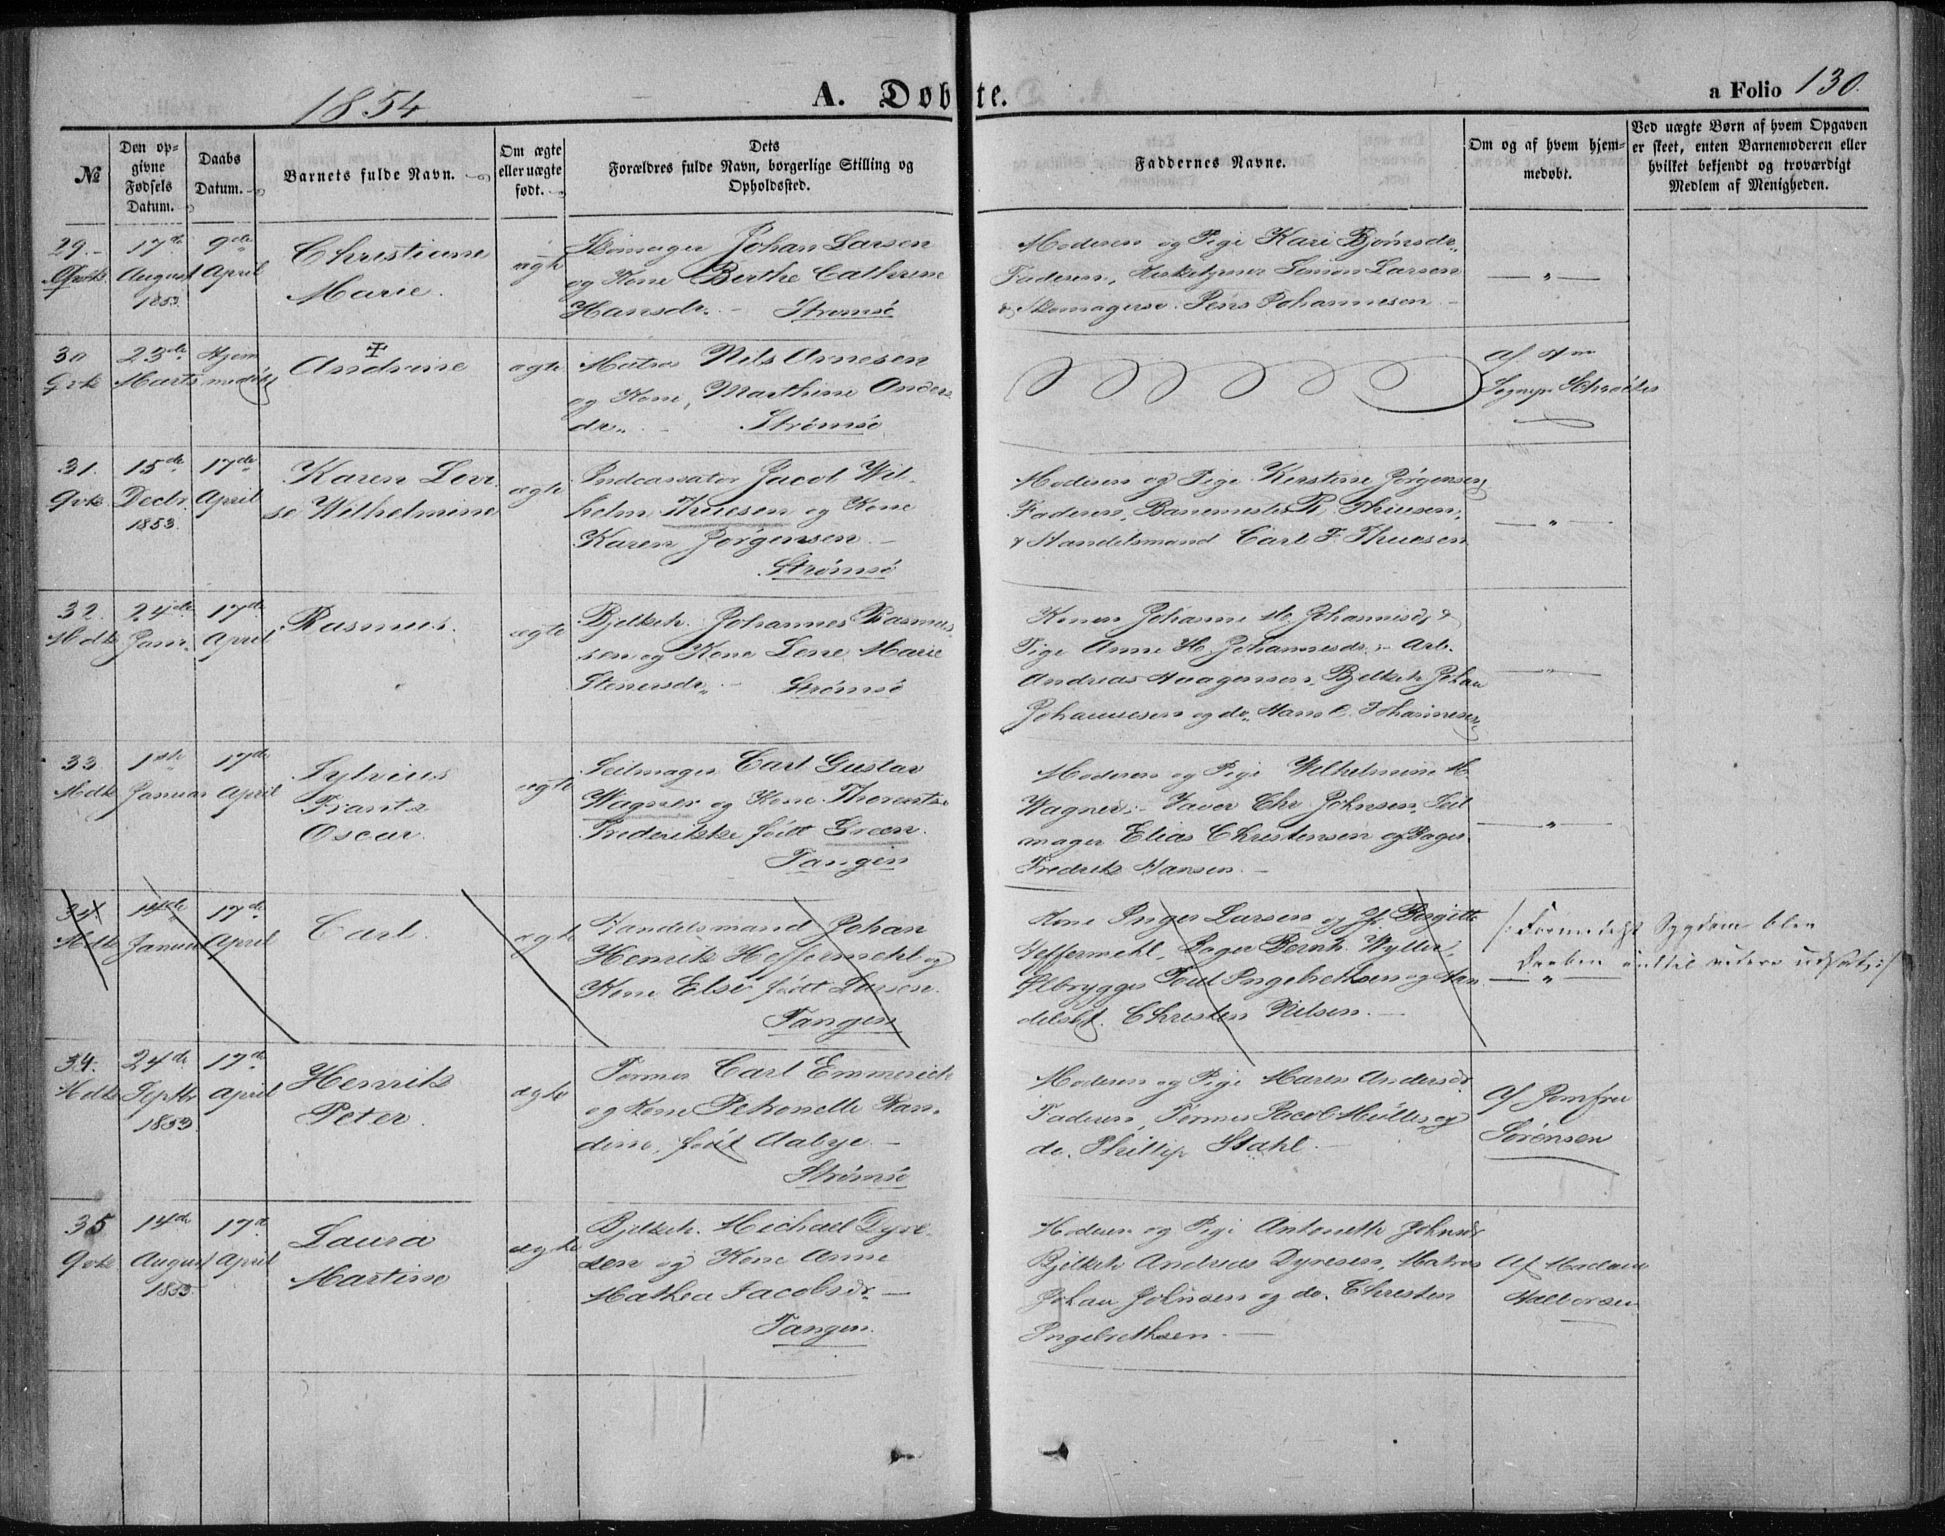 1854
A. Døbte.
a Folio 130.
№
Den opgivne Fødsels Datum.
Daabs Datum.
Barnets fulde Navn.
Om ægte eller uægte født.
Dets Forældres fulde Navn, borgerlige Stilling og Opholdssted.
Faddernes Navne.
Om og af hvem hjemmedøbt.
Ved uægte Børn af hvem Opgaven er skeet, enten Barnemoderen eller hvilket bekjendt og troværdigt Medlem af Menigheden.
29.
17de August 1853
9de April
Christiane
Marie.
ægte
Skomager Johan Larsen
og Kone Berthe Cathrine
Hansdr. - Strømsø
Moderen og Pige Kari Bjørnsdr.
Faderen, Kirketjener Simon Larsen
& Skomagersv. Jens Johannesen -
— " —
30
Qvk
23de Marts
Hjem
Andrine
ægte
Matros Nils Arnesen
og Kone, Marthine Anders
dr. - Strømsø
Af Hr
Sognepr Schrøder
31.
Qvk
15de Decbr. 1853.
17de April
Karen Lovi
se Wilhelmine
ægte
Indcassator Jacob Wil-
helm Thuesen og Kone
Karen Jørgensen -
Strømsø
Moderen og Pige Kirstine Jørgensen
Faderen, Banemester P. Thuesen,
& Handelsmand Carl F. Thuesen
— " —
32.
Mdk
24de Jan.
17de April
Rasmus.
ægte
Bjelkeh. Johannes Rasmus
sen og Kone Lene Marie
Stenersdr. - Strømsø
Konen Johanne M. Johannesdr &
Pige Anne H. Johannesdr. - Arb.
Andreas Haagensen, Bjelkeh Johan
Johannesen og do. Hans C. Johannesen
— " —
33.
Mdk
1ste Januar
17de April
Sylvius
Frants
Oscar.
ægte
Seilmager Carl Gustav
Wagner og Kone Thorentse
Frederikke født Græn.
Tangen
Moderen og Pige Wilhelmine M.
Wagner. - Farver Chr. Johnsen, Seil
mager Elias Christensen og Bager
Fredrik Hansen. -
— " —
34.
Mdk
14de Januar
17de April
Carl.
ægte
Handelsmand Johan
Henrik Heffermehl og
Kone Else født Larsen.
Tangen
Kone Inger Larsen og Jf. Birgitte
Heffermehl, Bager Bernh. Wyller,
Ølbrygger Poul Ingebrethsen og Han
delsbt. Christen Nilsen. -
/: Formedelst Sygdom blev
Daaben indtil videre udsat :/
— " —
34.
Mdk
24de Septbr 1853
17de April
Henrik
Peter.
ægte
Former Carl Emmerich
og Kone Petronelle Ran-
dine, født Aabye. -
Strømsø
Moderen og Pige Maren Andersdr
Faderen, Former Jacob Müller og
do. Phillip Stahl. -
Af Jomfru
Sørensen
35
Qvk
14de August 1853.
17de April
Laura
Martine
ægte
Bjelkeh. Michael Dyre-
sen og Kone Anne
Mathea Jacobsdr. -
Tangen.
Moderen og Pige Antonette Johnsdr
Bjelkeh Andreas Dyresen, Matros
Johan Johnsen og do. Christen
Ingebrethsen. -
Af Madam
Halvorsen